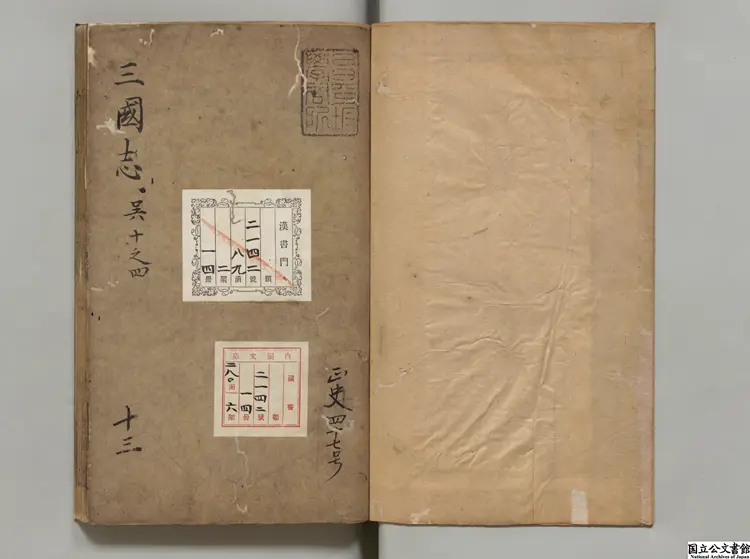 三國志 吳十之四
十三
正史四ノ七号
漢書門
類
二一四二號
八九函
二架
一四冊
內閣文庫
漢書
二一四二號
一四冊
二八〇函
六架
国立公文書館
National Archives of Japan